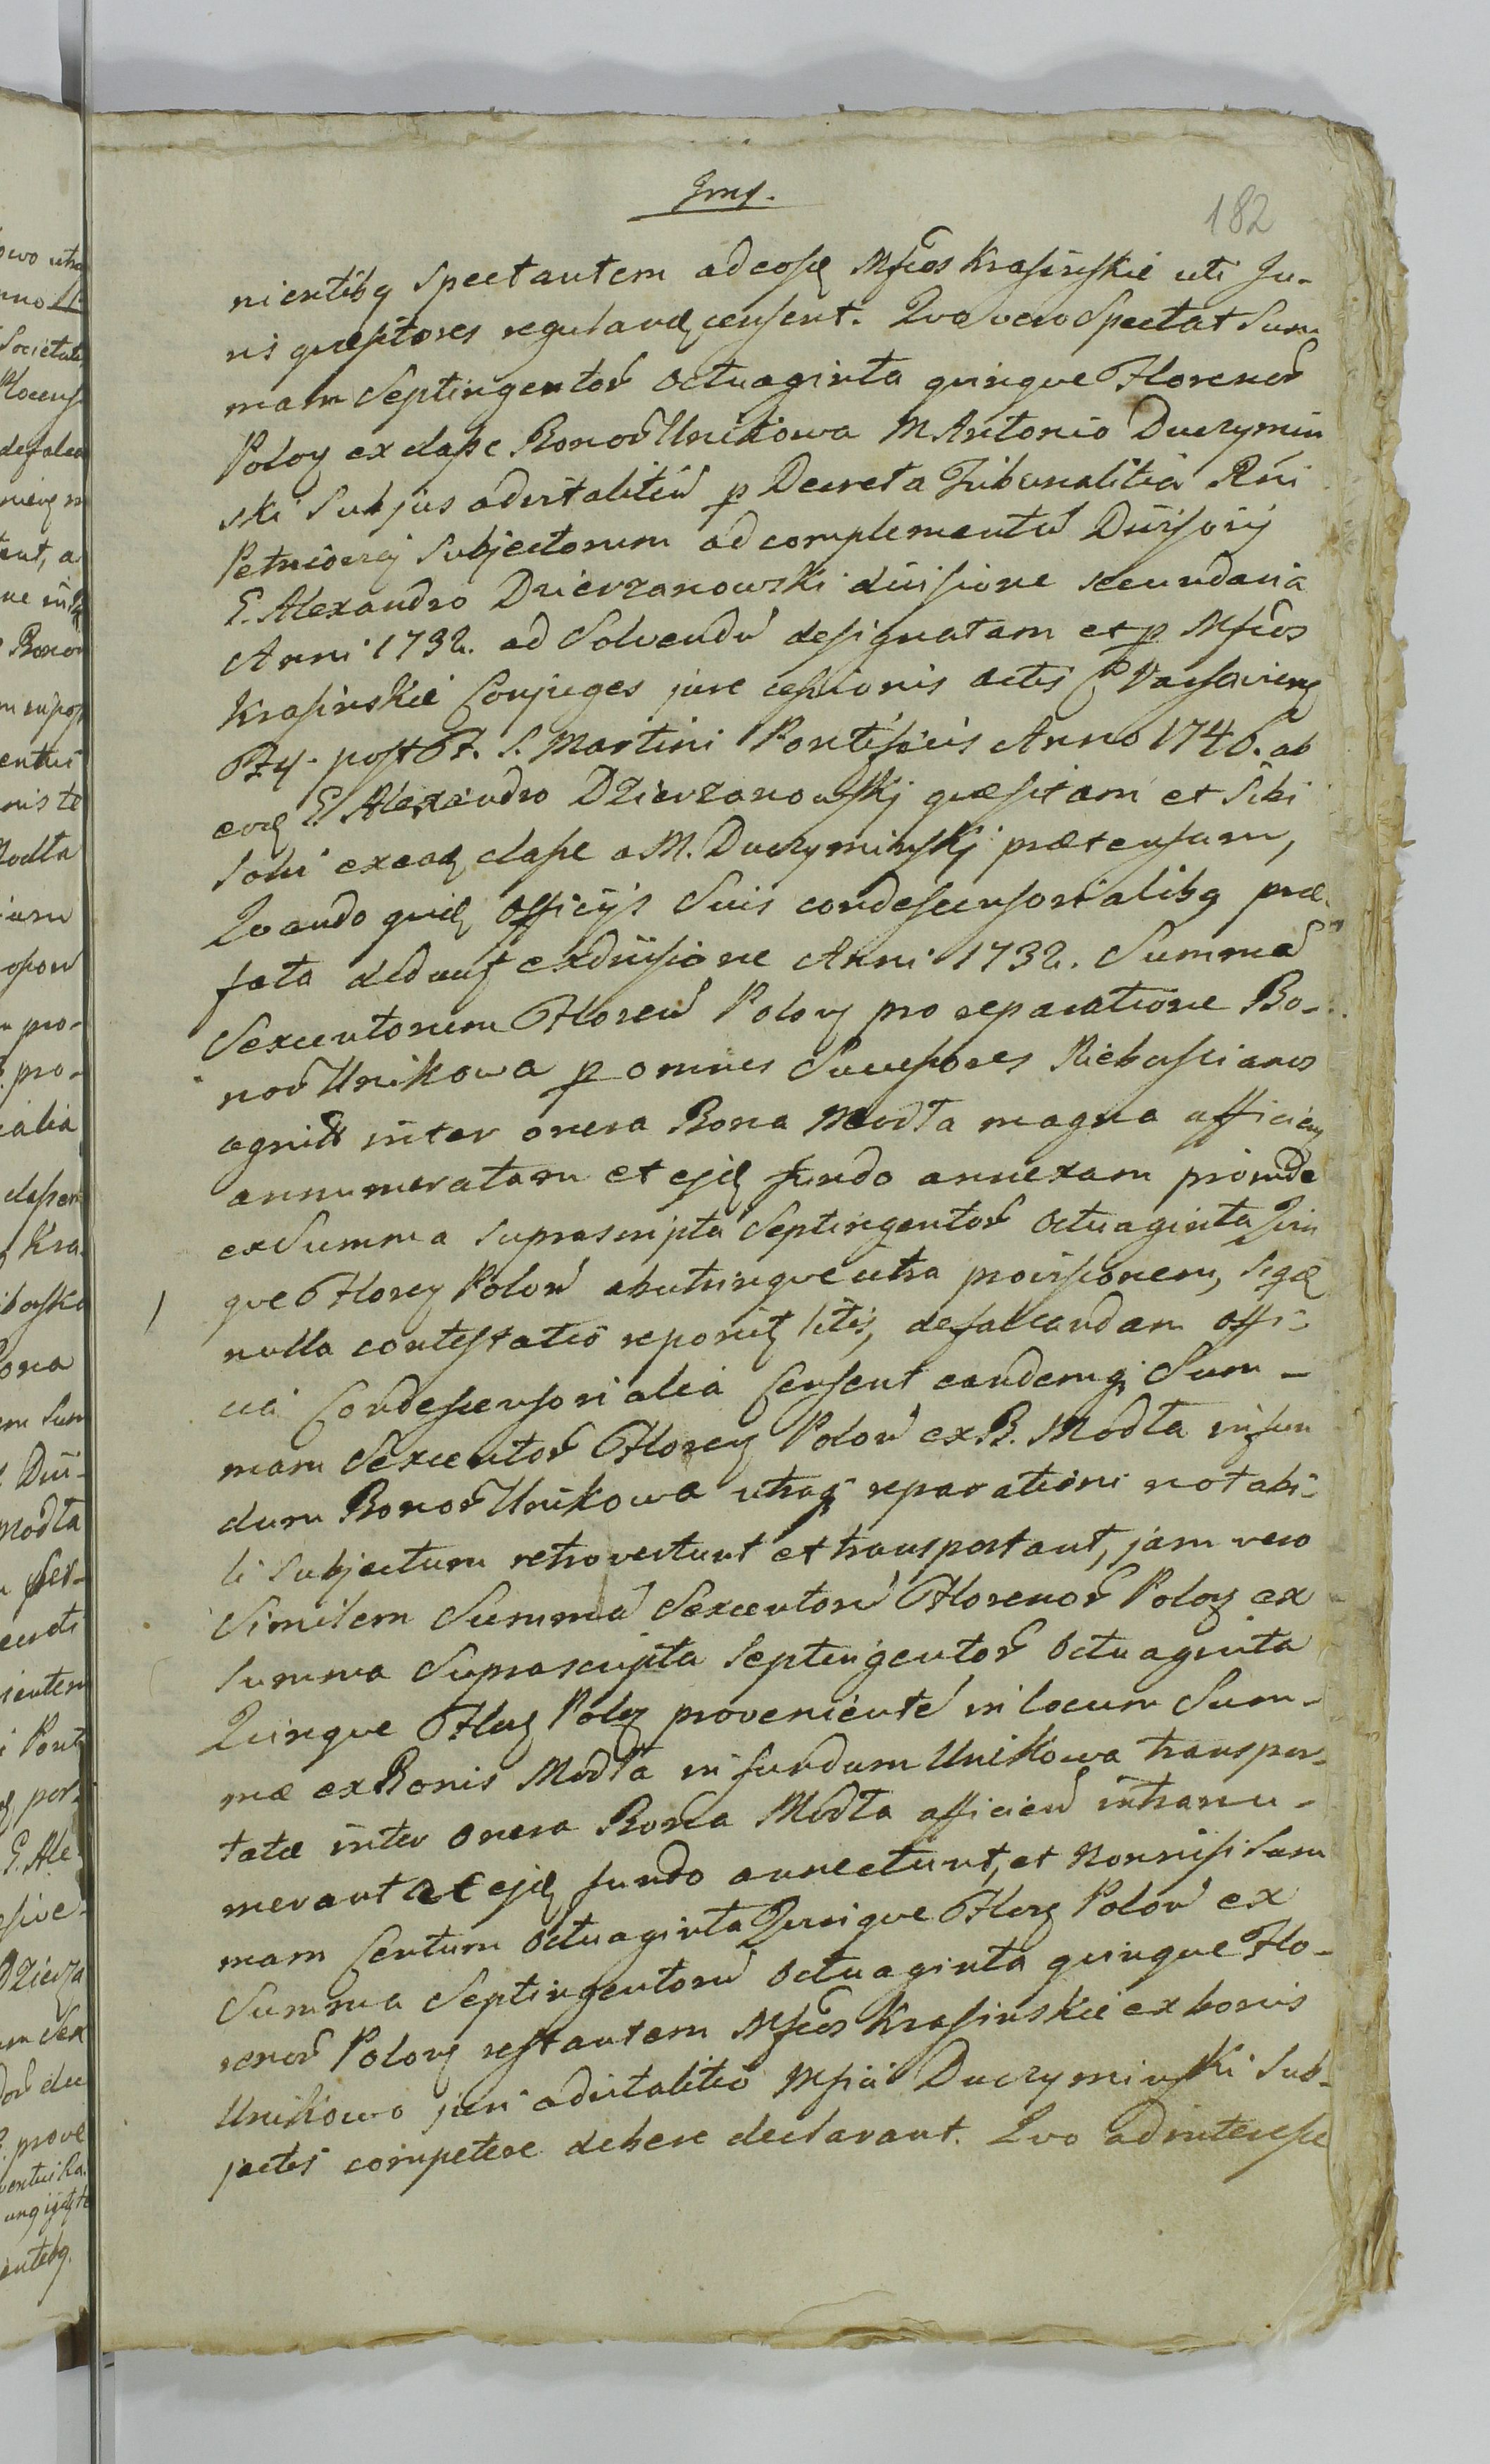 Jmś.
182
nientibq Spectantem ad eosd Mfcos Krasinskie uti Ju-
ris quæsitores reguland censent. Quo vero Spectat Sum
mam Septingentor Octuaginta quinque Florenor
Polon ex classe Bonor Unikowa M Antonio Duczymin
ski Sub jus advitalitiu p Decreta Tribunalitia Rni
Petricovien Subjectorum ad complementu Divisorij
G. Alexandro Dzierzanowski divisione secundaria
Anni 1732. ad Solvendu designatam et p Mfcos
Krasinskie Conjuges jure cessionis actis C Varsavien
F. 4. post F. S. Martini Pontificis Anno 1746. ab
eod G Alexandro Dzierzanowskj quæsitam et Sibi
Solvi ex ead classe a M. Duczyminskj prætensum,
Quando quid Officijs Suis condescensorialibq præ-
fata deducit ex divisione Anni 1732. Summa
Sexcentorum Floren Polon pro reparatione Bo-
nor Unikowa p omnes Successores Nieborscianos
agnit inter onera Bona Modła magna afficien
annumeratam et ejd fundo annexam proinde
ex Summa suprascripta Septingentor Octuaginta Quin
que Floren Polon abutrinque citra provisionem, siqd
nulla contestatio reperit litis, defalcandam Offi-
cia Condescensorialia Censent eandemq Sum-
mam Sexcentor Floren Polon ex B. Modła in fun
dum Bonor Unikowa utraq reparationi notabi-
li Subjectum retrovertunt et transportant, jam vero
Similem Summa Sexcentoru Florenor Polon ex
Summa Suprascripta Septingentor Octuaginta
Quinque Flor Polon provenienté in locum Sum-
mæ ex Bonis Modła in fundum Unikowa transpor-
tatæ inter Onera Bona Modła afficien intranu-
merant ac ejd fundo annectunt, et Nonnisi Sum
mam Centum Octuaginta Quinque Flor Polon ex
Summa Septingentoru Octuaginta quinque Flo-
renor Polon restantem Mfcos Krasinskie ex bonis
Unikowo juri advitalitio Mfci Duczyminski Sub-
jectis competere debere declarant. Quo ad interesse